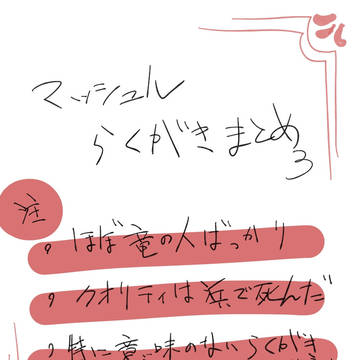 マッシュル
らくがきまとめ
3
注
・ほぼ竜の人ばっかり
・クオリティは浜で死んだ
・特に意味のないらくがき